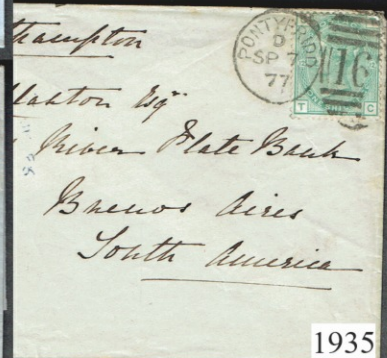 thampton
PONTYPRIDD
D
SP 7
77
116
T C
Esqr
River Plate Bank
Buenos Aires
South America
1935